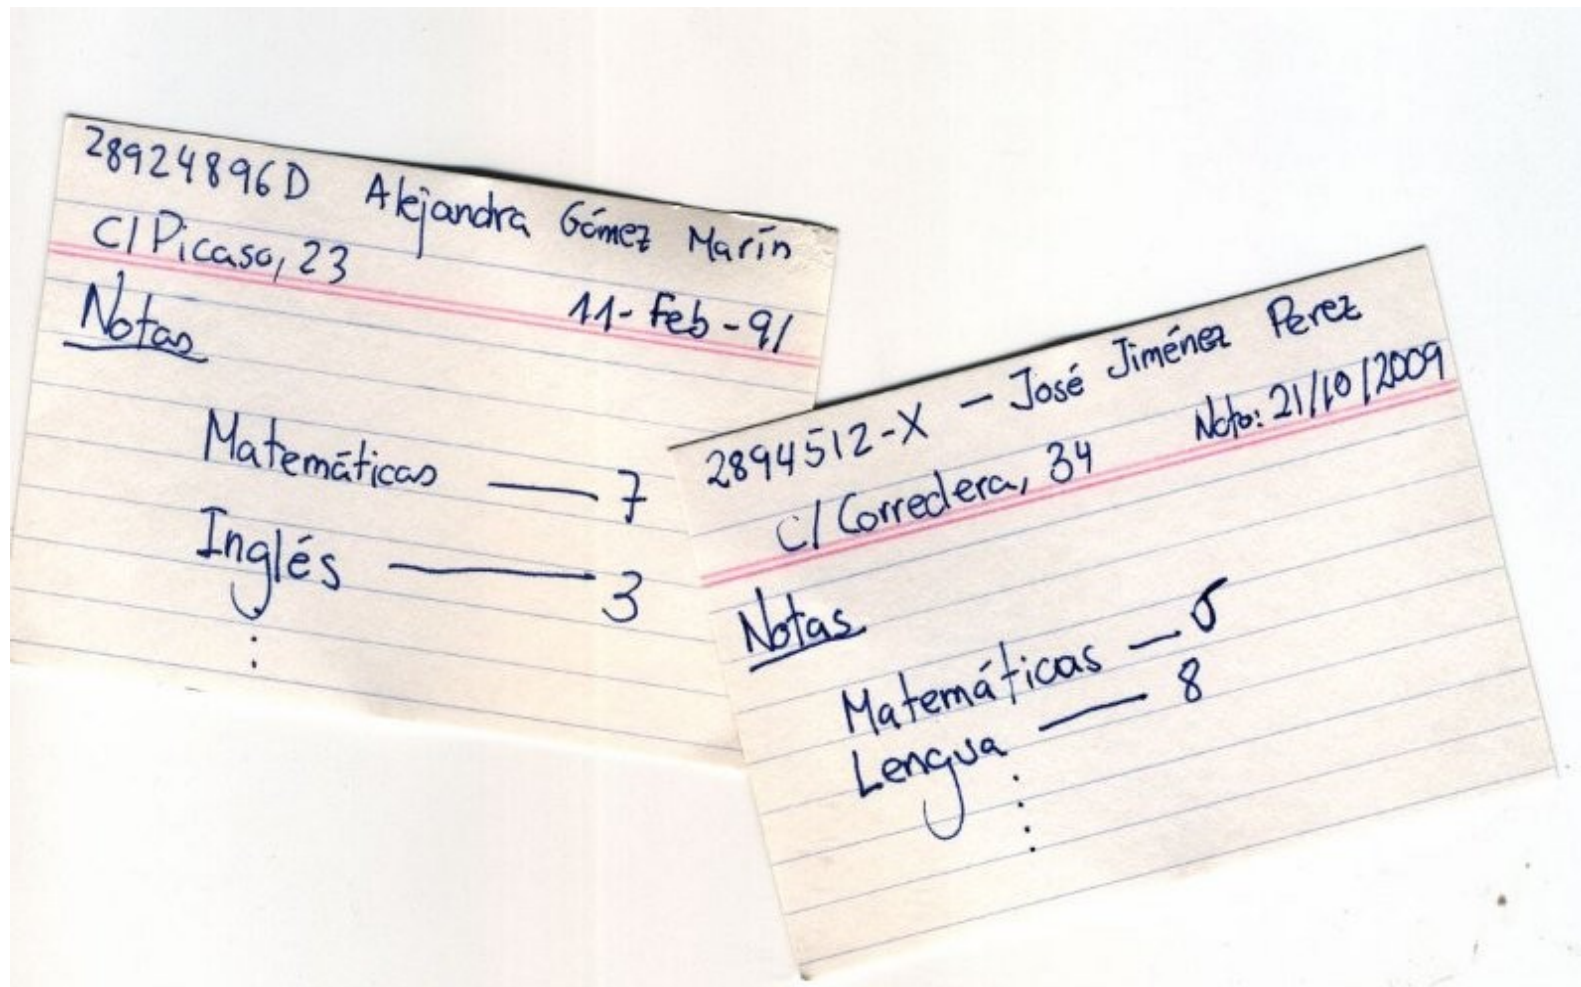 28924896D Alejandra Gómez Marín
C/ Picaso, 23
11-Feb-91
Notas
Matemáticas — 7
Inglés — 3
⋮
2894512-X - José Jiménez Perez
C/ Corredera, 34
21/10/2009
Notas
Matemáticas — 5
Lengua — 8
⋮